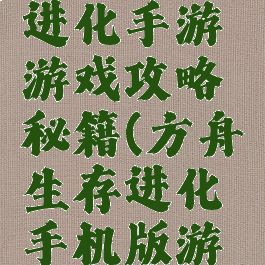 进化手游
游戏攻略
秘籍(方舟
生存进化
手机版游